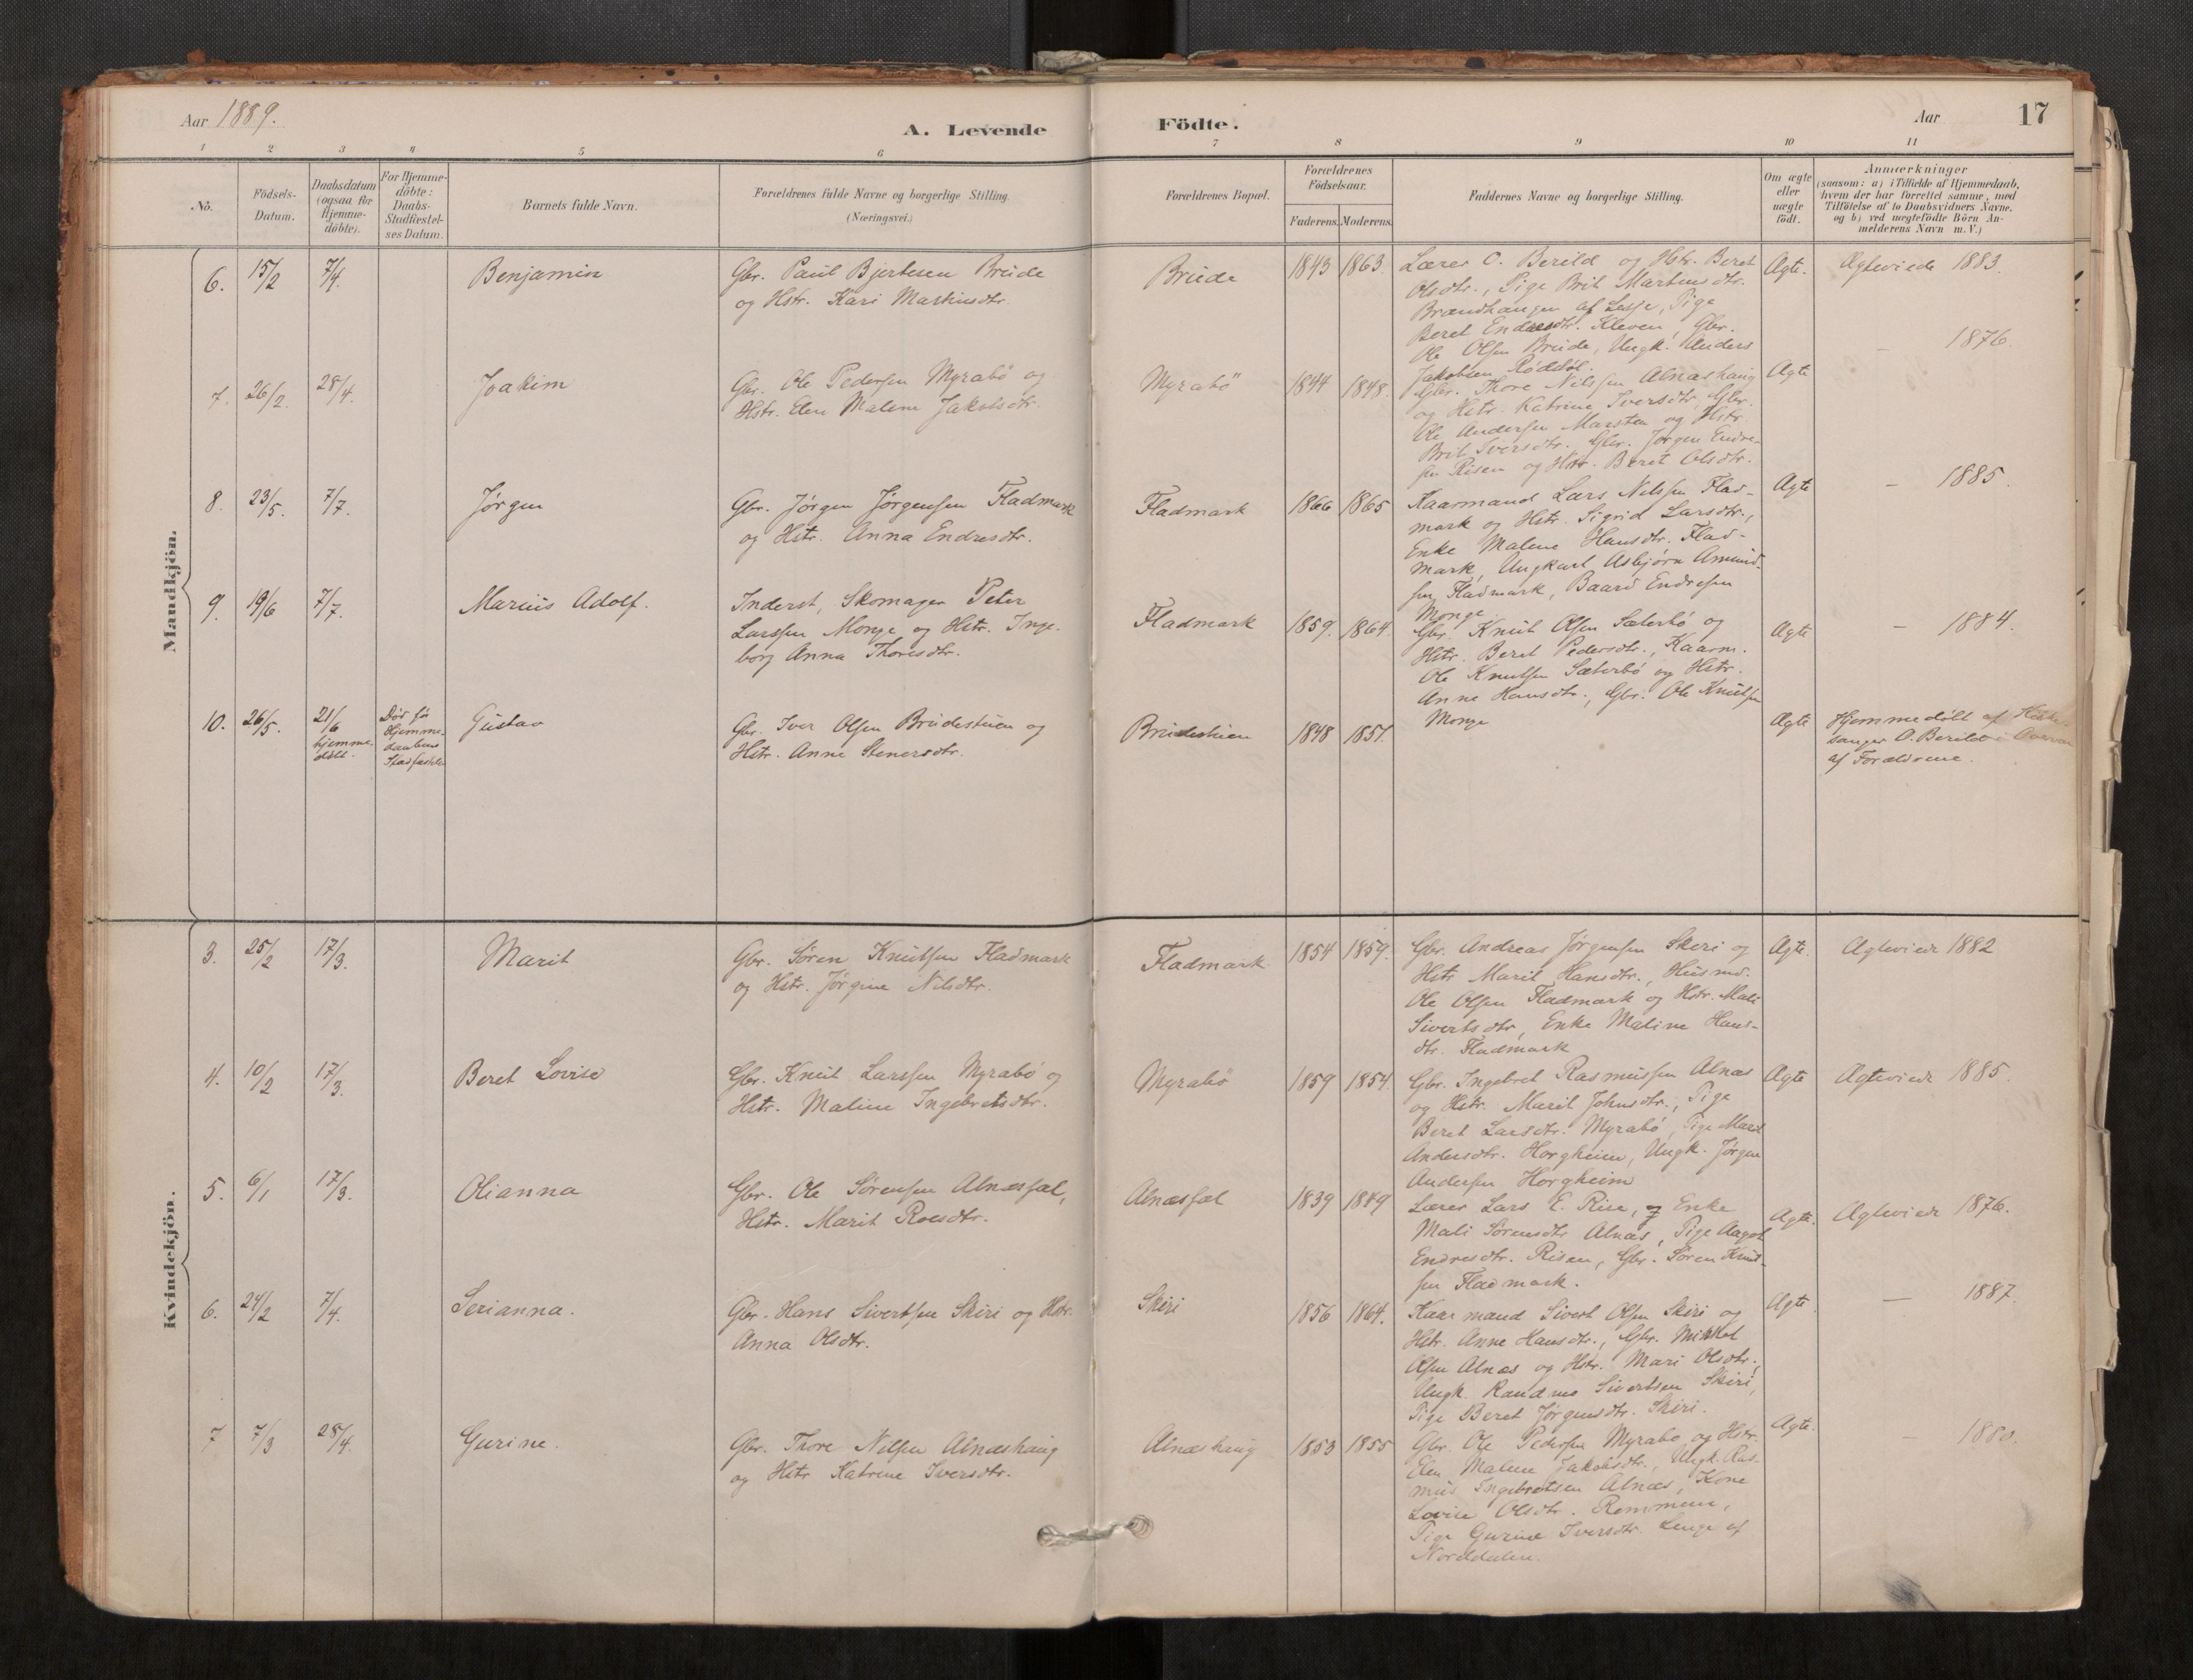 Aar 1889.
A. Levende Födte.
Aar
17
1 2 3 4 5 6 7 8 9 10 11
No.
Födsels-
Datum.
Daabsdatum
(ogsaa for
Hjemme-
döbte).
For Hjemme-
döbte:
Daabs-
Stadfæstel-
ses Datum.
Barnets fulde Navn.
Forældrenes fulde Navne og borgerlige Stilling.
(Næringsvei.)
Forældrenes Bopæl.
Forældrenes
Födselsaar.
Faderens. Moderens.
Faddernes Navne og borgerlige Stilling.
Om ægte
eller
uægte
födt.
Anmærkninger
(saasom: a) i Tilfælde af Hjemmedaab,
hvem der har forrettet samme, med
Tilföielse af to Daabsvidners Navne,
og b) ved uægtefödte Börn An-
melderens Navn m.V.)
Mandkjön.
6. 15/2 7/4. Benjamin
Gbr. Paul Bjertesen Bride
og Hstr. Kari Martinsdtr.
Bride 1843 1863.
Lærer O. Berild og Hstr. Beret
Olsdtr., Pige Brit Martensdtr.
Brandhaugen af Lesje, Pige
Beret Endresdtr. Kleven, Gbr.
Ole Olsen Bride, Ungk. Anders
Jakobsen Rødstøl.
Ægte. Ægteviede 1883.
7. 26/2. 28/4. Joakim
Gbr. Ole Pedersen Myrabö og
Hstr. Elen Malene Jakobsdtr.
Myrabö 1844 1848.
Gbr. Thore Nilssen Alnæshaug
og Hstr. Katrine Iversdtr. Gbr.
Ole Andersen Marsten og Hstr.
Brit Iversdtr. Gbr. Jørgen Endre-
sen Risen og Hstr. Beret Olsdtr.
Ægte — 1876.
8. 23/5. 7/7. Jørgen
Gbr. Jørgen Jørgensen Fladmark
og Hstr. Anna Endresdtr.
Fladmark 1866 1865
Kaarmand Lars Nilssen Flad-
mark og Hstr. Sigrid Larsdtr.,
Enke Malene Hansdtr. Flad-
mark, Ungkarl Asbjørn Amund-
sen Fladmark, Baard Endresen
Monge
Ægte — 1885.
9. 19/6 7/7. Marius Adolf.
Inderst, Skomager Peter
Larssen Monge og Hstr. Inge-
borg Anna Thoresdtr.
Fladmark 1859. 1864.
Gbr. Knut Olsen Sæterbö og
Hstr. Beret Pedersdtr., Kaarm.
Ole Knutsen Sæterbö og Hstr.
Anne Hansdtr., Gbr. Ole Knutsen
Monge
Ægte — 1884.
10. 26/5. 21/6
hjemme-
döbt.
Död før
Hjemme-
daabens
Stadfæstelse
Gustav
Gbr. Iver Olsen Bridestuen og
Hstr. Anne Stenersdtr.
Bridestuen 1848 1857.
Ægte
Hjemmedöbt af Kirke-
sanger O. Berild i Overvær
af Forældrene.
Kvindekjön.
3. 25/2 17/3. Marit
Gbr. Søren Knutsen Fladmark
og Hstr. Jørgine Nilsdtr.
Fladmark 1854 1859.
Gbr. Andreas Jørgensen Skiri og
Hstr Marit Hansdtr., Husmd.
Ole Olsen Fladmark og Hstr. Mali
Sivertsdtr, Enke Maline Hans-
dtr. Fladmark
Ægte. Ægteviede 1882
4. 10/2 17/3. Beret Lovise
Gbr. Knut Larssen Myrabö og
Hstr. Maline Ingebretsdtr.
Myrabö 1859 1854.
Gbr. Ingebret Rasmussen Alnæs
og Hstr. Marit Johnsdtr., Pige
Beret Larsdtr. Myrabö, Pige Marit
Andersdtr. Horgheim, Ungk. Jørgen
Andersen Horgheim
Ægte Ægteviede 1885.
5. 6/1 17/3. Olianna
Gbr. Ole Sørensen Alnæsfæl,
Hstr. Marit Roesdtr.
Alnæsfæl 1839 1849
Lærer Lars E. Rise, og Enke
Mali Sørensdtr Alnæs, Pige Aagot
Endresdtr. Risen, Gbr. Søren Knut-
sen Fladmark.
Ægte. Ægteviede 1876.
6. 24/2 7/4. Serianna.
Gbr. Hans Sivertsen Skiri og Hstr.
Anna Olsdtr.
Skiri 1856 1864.
Kaarmand Sivert Olsen Skiri og
Hstr. Anne Hansdtr., Gbr. Mikkel
Olsen Alnæs og Hstr. Mari Olsdtr.,
Ungk. Randmo Sivertsen Skiri,
Pige Beret Jørgensdtr. Skiri.
Ægte. — 1887.
7 7/3 28/4. Gurine.
Gbr. Thore Nilsen Alnæshaug
og Hstr Katrine Iversdtr.
Alnæshaug 1853 1855
Gbr. Ole Pedersen Myrabö og Hstr.
Elen Malene Jakobsdtr., Ungk. Ras-
mus Ingebretsen Alnæs, Kone
Lovise Olsdtr. Remmem,
Pige Gurine Iversdtr. Lenge af
Norddalen.
Ægte. — 1880.